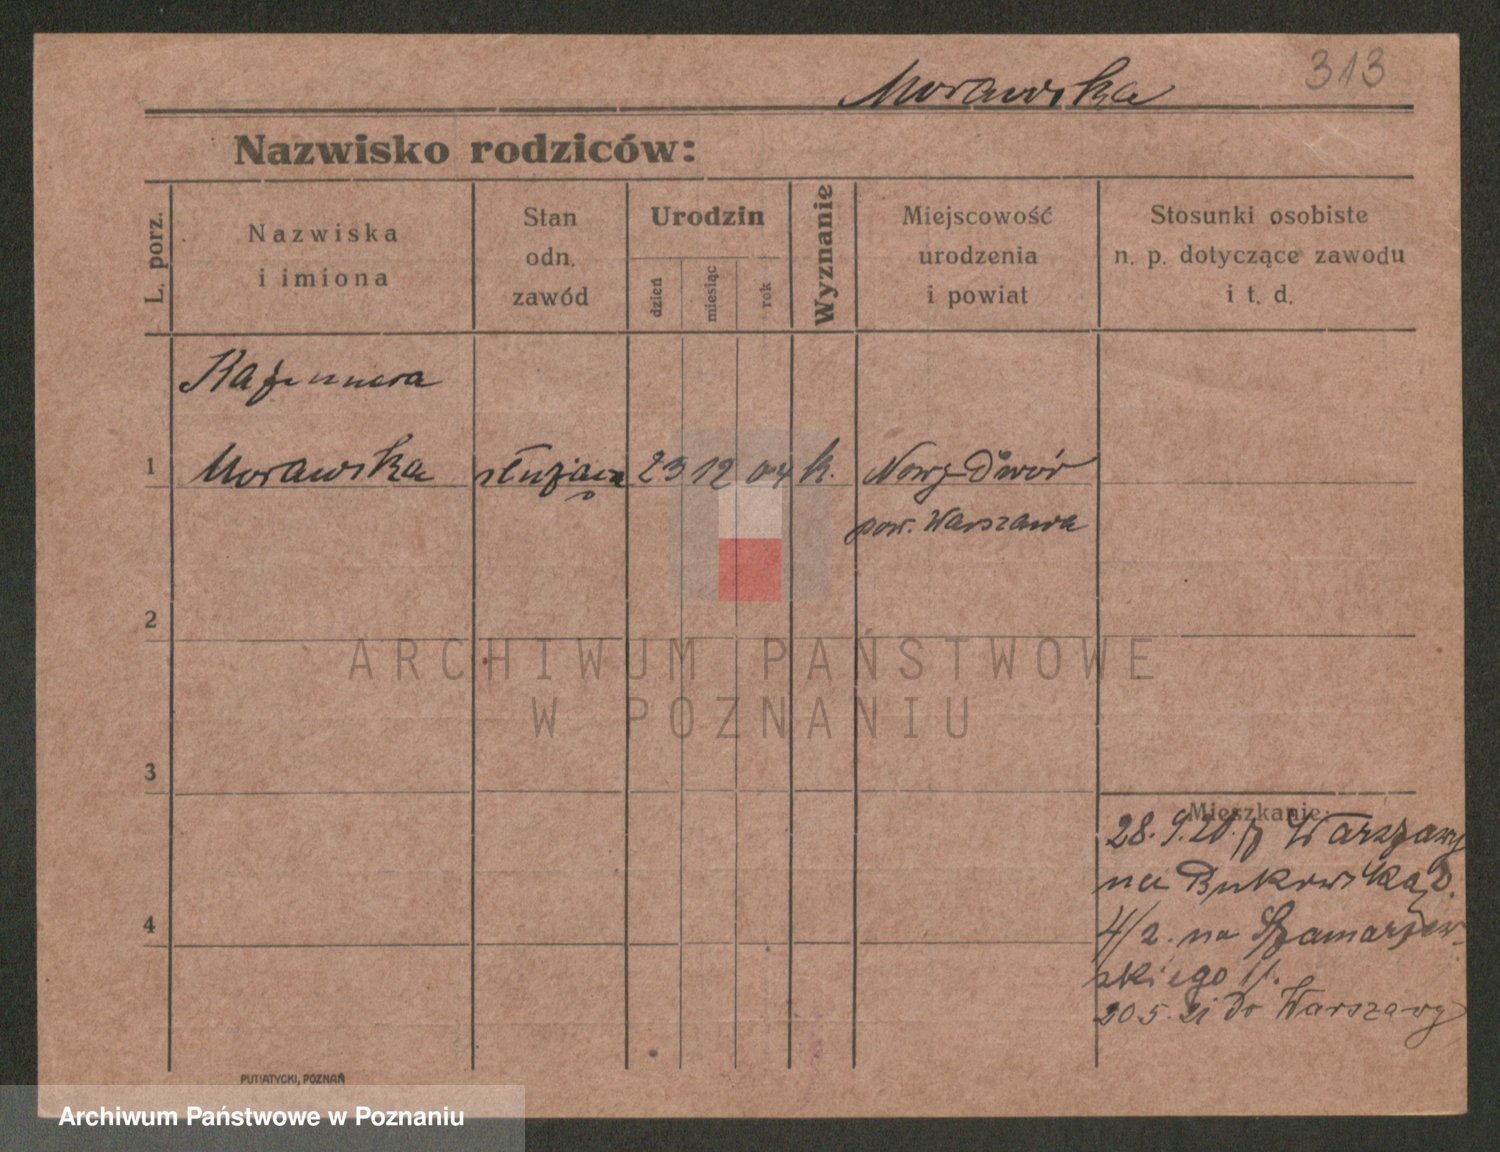 Morawska 313
Nazwisko rodziców:
L. porz.
Nazwiska
i imiona
Stan
odn.
zawód
Urodzin
dzień
miesiąc
rok
Wyznanie
Miejscowość
urodzenia
i powiat
Stosunki osobiste
n. p. dotyczące zawodu
i t. d.
Kazimiera
1 Morawska służąca 23 12 04 k. Nowy-Dwór
pow. Warszawa
2
ARCHIWUM PAŃSTWOWE
W POZNANIU
3
Mieszkanie:
28.9.20. z Warszawy
na Bukowską
4/2. na Szamarzew-
4
skiego 11.
20 5. 21 do Warszawy
PUTIATYCKI, POZNAŃ
Archiwum Państwowe w Poznaniu